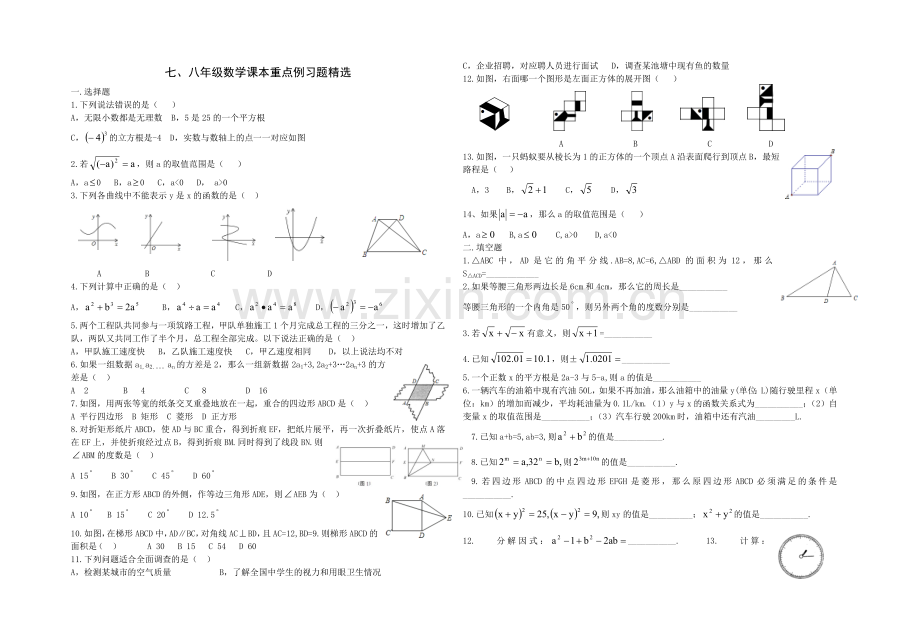 七、八年级数学课本重点例习题精选
一.选择题
1.下列说法错误的是（　）
A，无限小数都是无理数　B，5是25的一个平方根
C，(−4)³的立方根是-4　D，实数与数轴上的点一一对应如图
2.若√(−a)² = a，则a的取值范围是（　）
A，a≤0　B，a≥0　C，a<0　D，a>0
3.下列各曲线中不能表示y是x的函数的是（　）
A　B　C　D
4.下列计算中正确的是（　）
A，a²+b³=2a⁵　B，a⁴÷a=a⁴　C，a²•a⁴=a⁸　D，(−a²)³=−a⁶
5.两个工程队共同参与一项筑路工程，甲队单独施工1个月完成总工程的三分之一，这时增加了乙
队，两队又共同工作了半个月，总工程全部完成。以下说法正确的是（　）
A，甲队施工速度快　B，乙队施工速度快　C，甲乙速度相同　D，以上说法均不对
6.如果一组数据a₁,a₂......aₙ的方差是2，那么一组新数据2a₁+3,2a₂+3…2aₙ+3的方
差是（　）
A　2　B　4　C　8　D　16
7.如图，用两张等宽的纸条交叉重叠地放在一起，重合的四边形ABCD是（　）
A 平行四边形　B 矩形　C 菱形　D 正方形
8.对折矩形纸片ABCD，使AD与BC重合，得到折痕EF，把纸片展平，再一次折叠纸片，使点A落
在EF上，并使折痕经过点B，得到折痕BM.同时得到了线段BN.则
∠ABM的度数是（　）
A 15°　B 30°　C 45°　D 60°
（图1）　（图2）
9.如图，在正方形ABCD的外侧，作等边三角形ADE，则∠AEB为（　）
A 10°　B 15°　C 20°　D 12.5°
10.如图，在梯形ABCD中，AD∥BC，对角线AC⊥BD，且AC=12,BD=9.则梯形ABCD的
面积是（　）　A 30　B 15　C 54　D 60
11.下列问题适合全面调查的是（　）
A，检测某城市的空气质量　B，了解全国中学生的视力和用眼卫生情况
C，企业招聘，对应聘人员进行面试　D，调查某池塘中现有鱼的数量
12.如图，右面哪一个图形是左面正方体的展开图（　）
A　B　C　D
13.如图，一只蚂蚁要从棱长为1的正方体的一个顶点A沿表面爬行到顶点B，最短
路程是（　）
A，3　B，√2+1　C，√5　D，√3
14、如果|a|=−a，那么a的取值范围是（　）
A，a≥0　B,a≤0　C,a>0　D,a<0
二.填空题
1.△ABC中，AD是它的角平分线.AB=8,AC=6,△ABD的面积为12，那么
S△ACD=__________
2.如果等腰三角形两边长是6cm和4cm，那么它的周长是__________
等腰三角形的一个内角是50°，则另外两个角的度数分别是__________
3.若√x+√−x有意义，则√x+1=__________
4.已知√102.01=10.1，则±√1.0201=__________
5.一个正数x的平方根是2a-3与5-a,则a的值是__________
6.一辆汽车的油箱中现有汽油50L，如果不再加油，那么油箱中的油量y(单位:L)随行驶里程x（单
位：km）的增加而减少，平均耗油量为0.1L/km.（1）y与x的函数关系式为__________；（2）自
变量x的取值范围是__________；（3）汽车行驶200km时，油箱中还有汽油________L.
7.已知a+b=5,ab=3,则a²+b²的值是__________.
8.已知2ᵐ=a,32ⁿ=b,则2³ᵐ⁺¹⁰ⁿ的值是__________.
9.若四边形ABCD的中点四边形EFGH是菱形，那么原四边形ABCD必须满足的条件是
__________.
10.已知(x+y)²=25,(x−y)²=9,则xy的值是__________；x²+y²的值是__________.
12.　分解因式：a²−1+b²−2ab=__________.　13.　计算：
www.zixin.com.cn